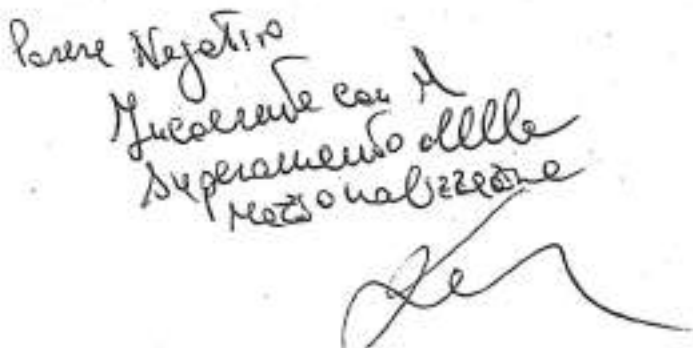 Parere Negativo
Incoerente con il
superamento della
razionalizzazione